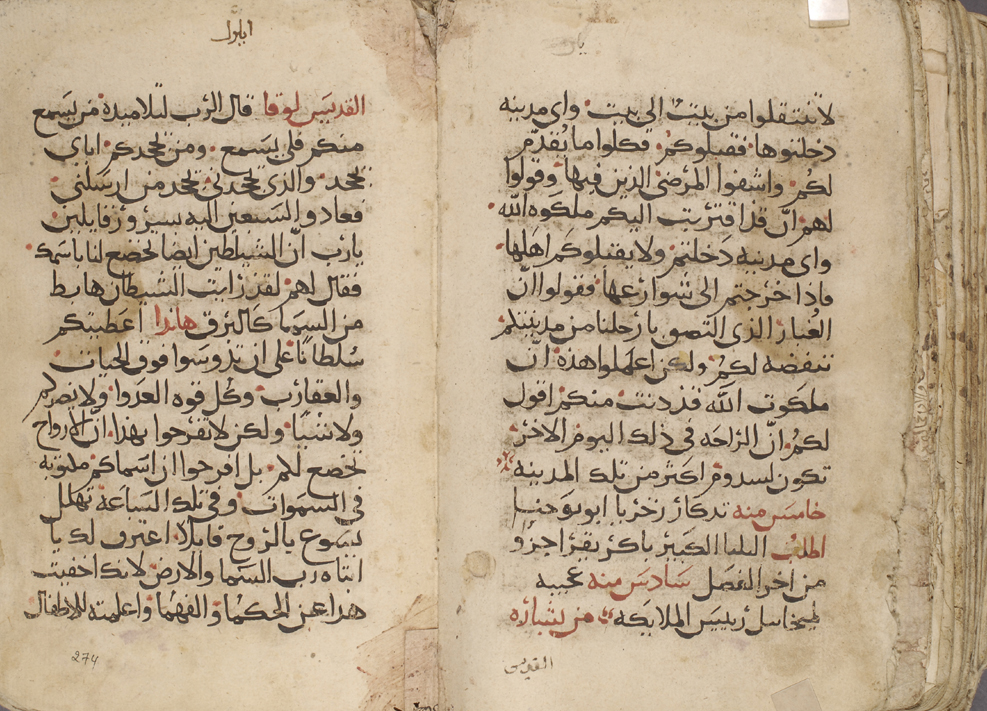 لا تنتقلوا من بيت الى بيت واى مدينه
دخلتوها فقبلوكم فكلوا ما يُقدّم
لكم واشفوا المرضى الذين فيها وقولوا
لهم ان قد اقتربت اليكم ملكوه الله
واى مدينه دخلتم ولا يقبلوكم اهلها
فاذا خرجتم الى شوارعها فقولوا انّ
الغبار الذى التصق بارجلنا من مدينتكم
ننفضه لكم ولكن اعلموا هذه انّ
ملكوت الله قد دنت منكم اقول
لكم انّ الراحه فى ذلك اليوم الاخر
تكون لسدوم اكثر من تلك المدينه
خامس منه تدكار زخريا ابو يوحنا
اطلب الباكر يقرا جزو
من اخر الفصل سادس منه عجيبه
ميخاييل رييس الملايكه من بشاره
القديس
ايلول
القديس لوقا قال الرب لتلاميده من يسمع
منكم فلى يسمع ومن يجحدكم اياي
يجحد والذى يجحدنى يجحد من ارسلنى
فعادوا السبعين اليه مسرورز قايلين
يارب انّ الشياطين ايضا تخضع لنا باسمك
فقال لهم لقد رايت الشيطان هابط
من السما كالبرق هاندا اعطيتكم
سُلطانًا على ان تدوسوا فوق الحيات
والعقارب وكُل قوه العدوا ولا يضركم
ولكن لا تفرحوا بهذا انّ الارواح
تخضع لكم بل افرحوا ان اسماكم مكتوبه
فى السموات وفى تلك الساعه تهلل
يسوع بالروح قايلًا اعترف لك يا
ابتاه رب السما والارض لانك اخفيت
هدا عن الحكما والفهما واعلمته للاطفال
274